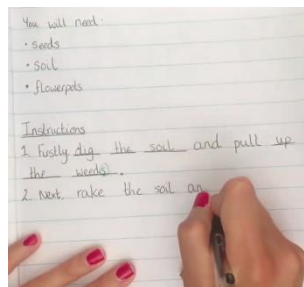 You will need:
• seeds
• soil
• flowerpots
Instructions
1. Firstly dig the soil and pull up
the weeds.
2. Next, rake the soil an